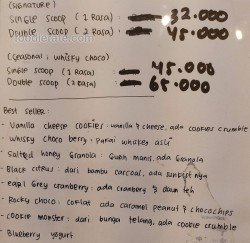 (SIGNATURE)
Single scoop (1 Rasa) : 32.000
Double Scoop (2 Rasa) : 45.000
(seasonal : whisky choco)
Single scoop (1 Rasa) : 45.000
Double scoop (2 Rasa) : 65.000
Best seller :
- Vanilla cheese cookies : vanilla & cheese, ada cookies crumble
- Whisky choco berry : punai whisker asli
- Salted honey Granola : Gurih manis, ada Granola
- Black citrus : dari bambu carcoal, ada sunkist nya
- earl Grey cranberry : ada cranberry & daun teh
- Rocky choco : coklat ada caramel peanut & chocochips
- cookie monster : dari bunga telang, ada cookie crumble
- Blueberry yogurt